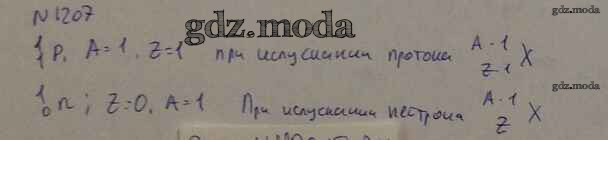 N 1207
gdz.moda
gdz.moda
¹₁p, A=1, Z=1 при испускании протона ᴬ⁻¹_Z-1 X
gdz.moda
¹₀n; Z=0, A=1 При испускании нейтрона ᴬ⁻¹_Z X